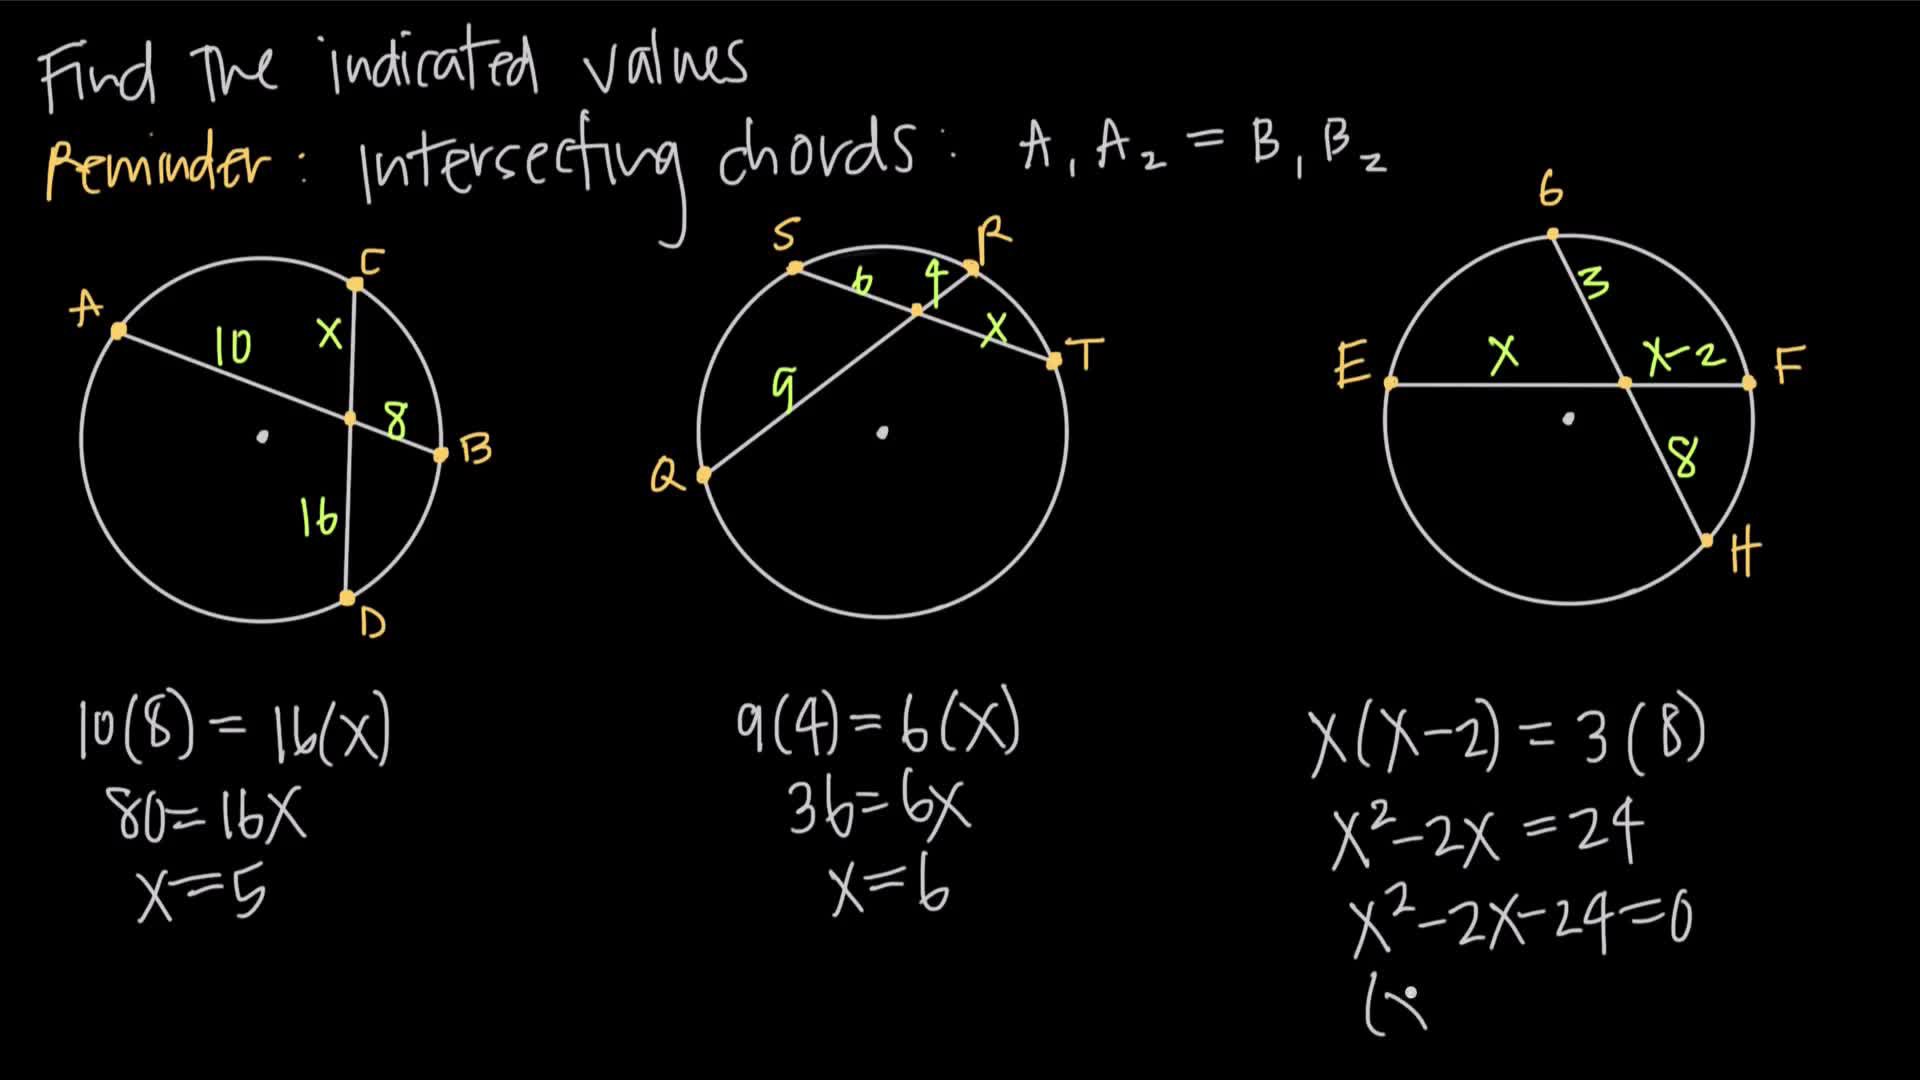 Find The indicated values
Reminder: Intersecting chords: A₁A₂ = B₁B₂
A
C
10
X
8
B
16
D
S
R
6
4
X
T
9
Q
G
3
E
X
X-2
F
8
H
10(8) = 16(X)
80=16X
X=5
9(4)=6(X)
36=6X
X=6
X(X-2) = 3(8)
X²-2X = 24
X²-2X-24=0
(